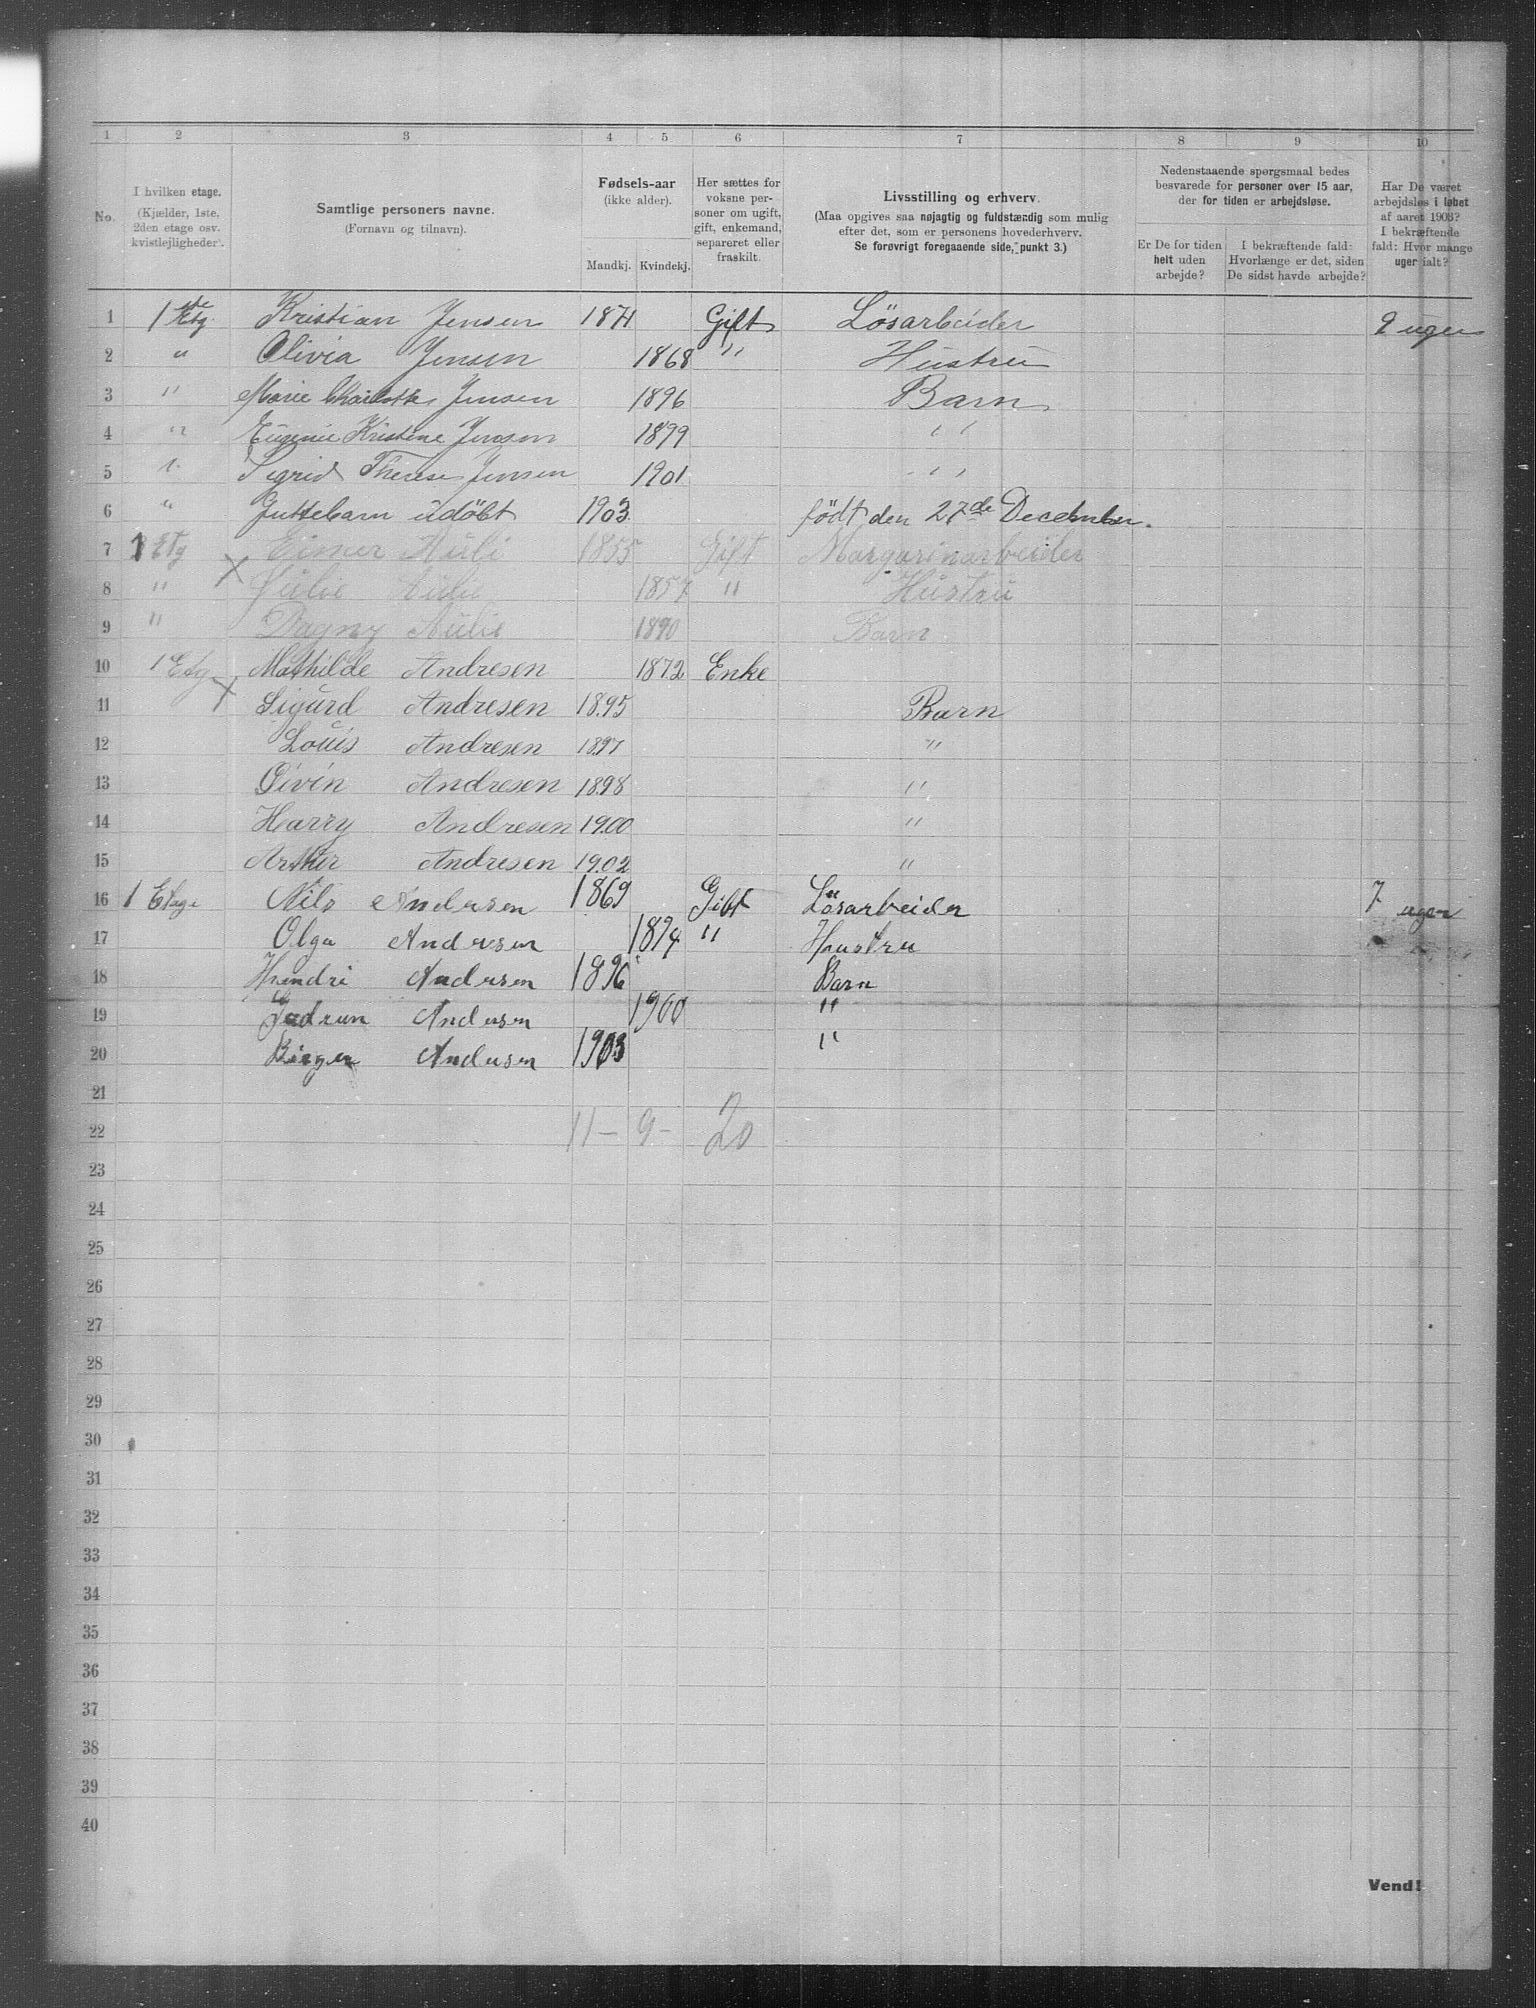 1 2 3 4 5 6 7 8 9 10
No. I hvilken etage. (Kjælder, 1ste, 2den etage osv. kvistlejligheder). Samtlige personers navne. (Fornavn og tilnavn). Fødsels-aar (ikke alder). Mandkj. Kvindekj. Her sættes for voksne personer om ugift, gift, enkemand, separeret eller fraskilt. Livsstilling og erhverv. (Maa opgives saa nøjagtig og fuldstændig som mulig efter det, som er personens hovederhverv. Se forøvrigt foregaaende side, punkt 3.) Nedenstaaende spørgsmaal bedes besvarede for personer over 15 aar, der for tiden er arbejdsløse. Er De for tiden helt uden arbejde? I bekræftende fald: Hvorlænge er det, siden De sidst havde arbejde? Har De været arbejdsløs i løbet af aaret 1903? I bekræftende fald: Hvor mange uger ialt?
1 1ste Etg. Kristian Jensen 1871 Gift Lösarbeider uger
2 " Olivia Jensen 1868 " Hustru
3 " Marie Charlotte Jensen 1896 Barn
4 " Eugenie Kristine Jensen 1899 "
5 " Sigrid Therese Jensen 1901 "
6 " Guttebarn udöbt 1903 födt den 27de December.
7 1 Etg Aüli 1855 Gift Margarinarbeider
8 " Julie Aülie 1857 " Hüstrü
9 " Dagny Aülie 1890 Barn
10 1 Etg Mathilde Andresen 1872 Enke
11 Sigurd Andresen 1895 Barn
12 Louis Andresen 1897 "
13 Eivin Andresen 1898 "
14 Harry Andresen 1900 "
15 Arthur Andresen 1902 "
16 1 Etage Nils Andersen 1869 Gift Lösarbeider 7 uger
17 Olga Andersen 1874 " Hustru
18 Hendri Andersen 1896 Barn
19 Gudrun Andersen 1900 "
20 Birger Andersen 1903 "
21
22 11 - 9 - 20
23
24
25
26
27
28
29
30
31
32
33
34
35
36
37
38
39
40
Vend!